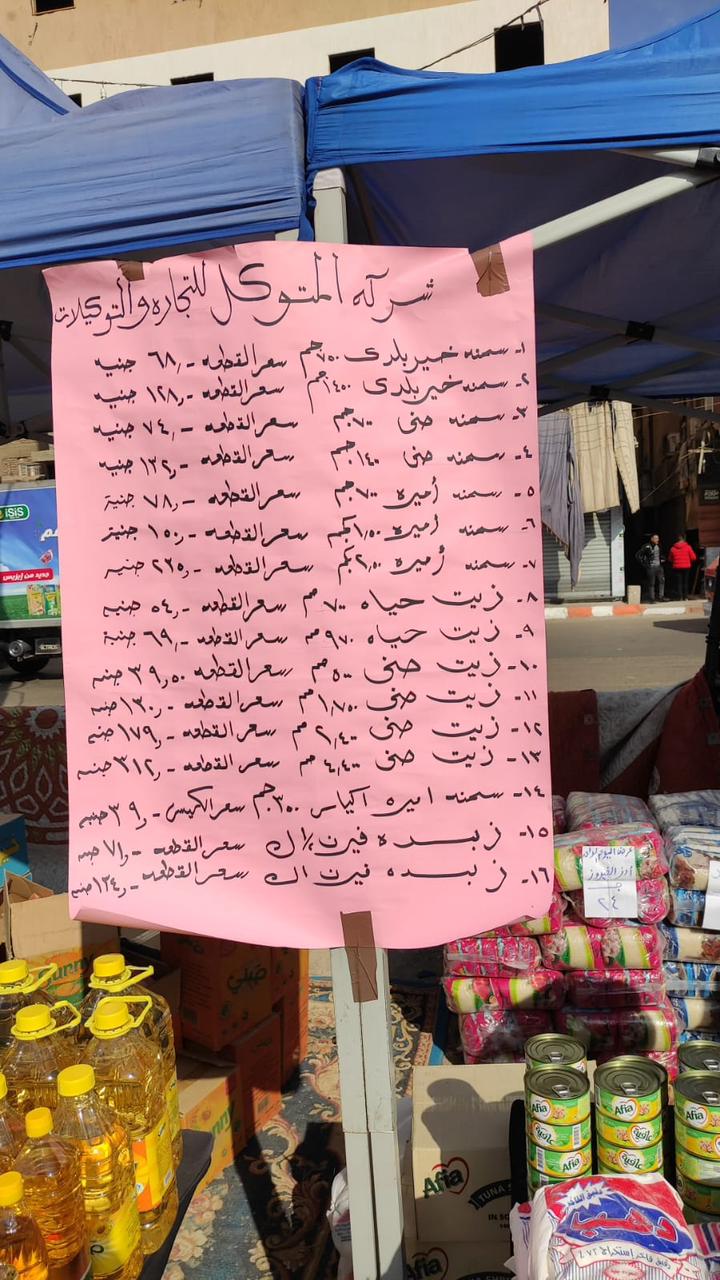 شركه المتوكل للتجاره والتوكيلات
١- سمنه خير بلدى ٧٥٠جم سعر القطعه -,٦٨ جنيه
٢- سمنه خير بلدى ١٤٠٠جم سعر القطعه -,١٢٨ جنيه
٣- سمنه صنى ٧٠٠جم سعر القطعه -,٧٤ جنيه
٤- سمنه صنى ١٤٠٠جم سعر القطعه -,١٣٢ جنيه
٥- سمنه أميره ٧٠٠جم سعر القطعه -,٧٨ جنية
٦- سمنه أميره ١,٥٠٠كجم سعر القطعه -,١٥٠ جنية
٧- سمنه أميره ٢,٥٠٠كجم سعر القطعه -,٢٢٥ جنيه
٨- زيت حياه ٧٠٠ مم سعر القطعه -,٥٤ جنيه
٩- زيت حياه ٩٧٠ مم سعر القطعه -,٦٩ جنية
١٠- زيت صنى ٥٠٠ مم سعر القطعه ٣٩,٥٠ جنيه
١١- زيت صنى ١,٧٥٠ مم سعر القطعه -,١٣٠ جنيه
١٢- زيت صنى ٢,٤٠٠ مم سعر القطعه -,١٧٩ جنيه
١٣- زيت صنى ٤,٤٠٠ مم سعر القطعه -,٣١٢ جنيه
١٤- سمنه اميره اكياس ٣٥٠جم سعر الكيس -,٣٩ جنيه
١٥- زبده فيرن ½ ك سعر القطعه -,٧١ جنيه
١٦- زبده فيرن ١ك سعر القطعه -,١٣٤ جنيه
isis
جديد من إيزيس
عرض اليوم الواحد
أرز الفيروز
ج
٢٤
nny
صني
Afia
Afia
Afia
عافية
Afia
Afia
TUNA
دهب
دقيق فاخر استخراج ٧٢٪